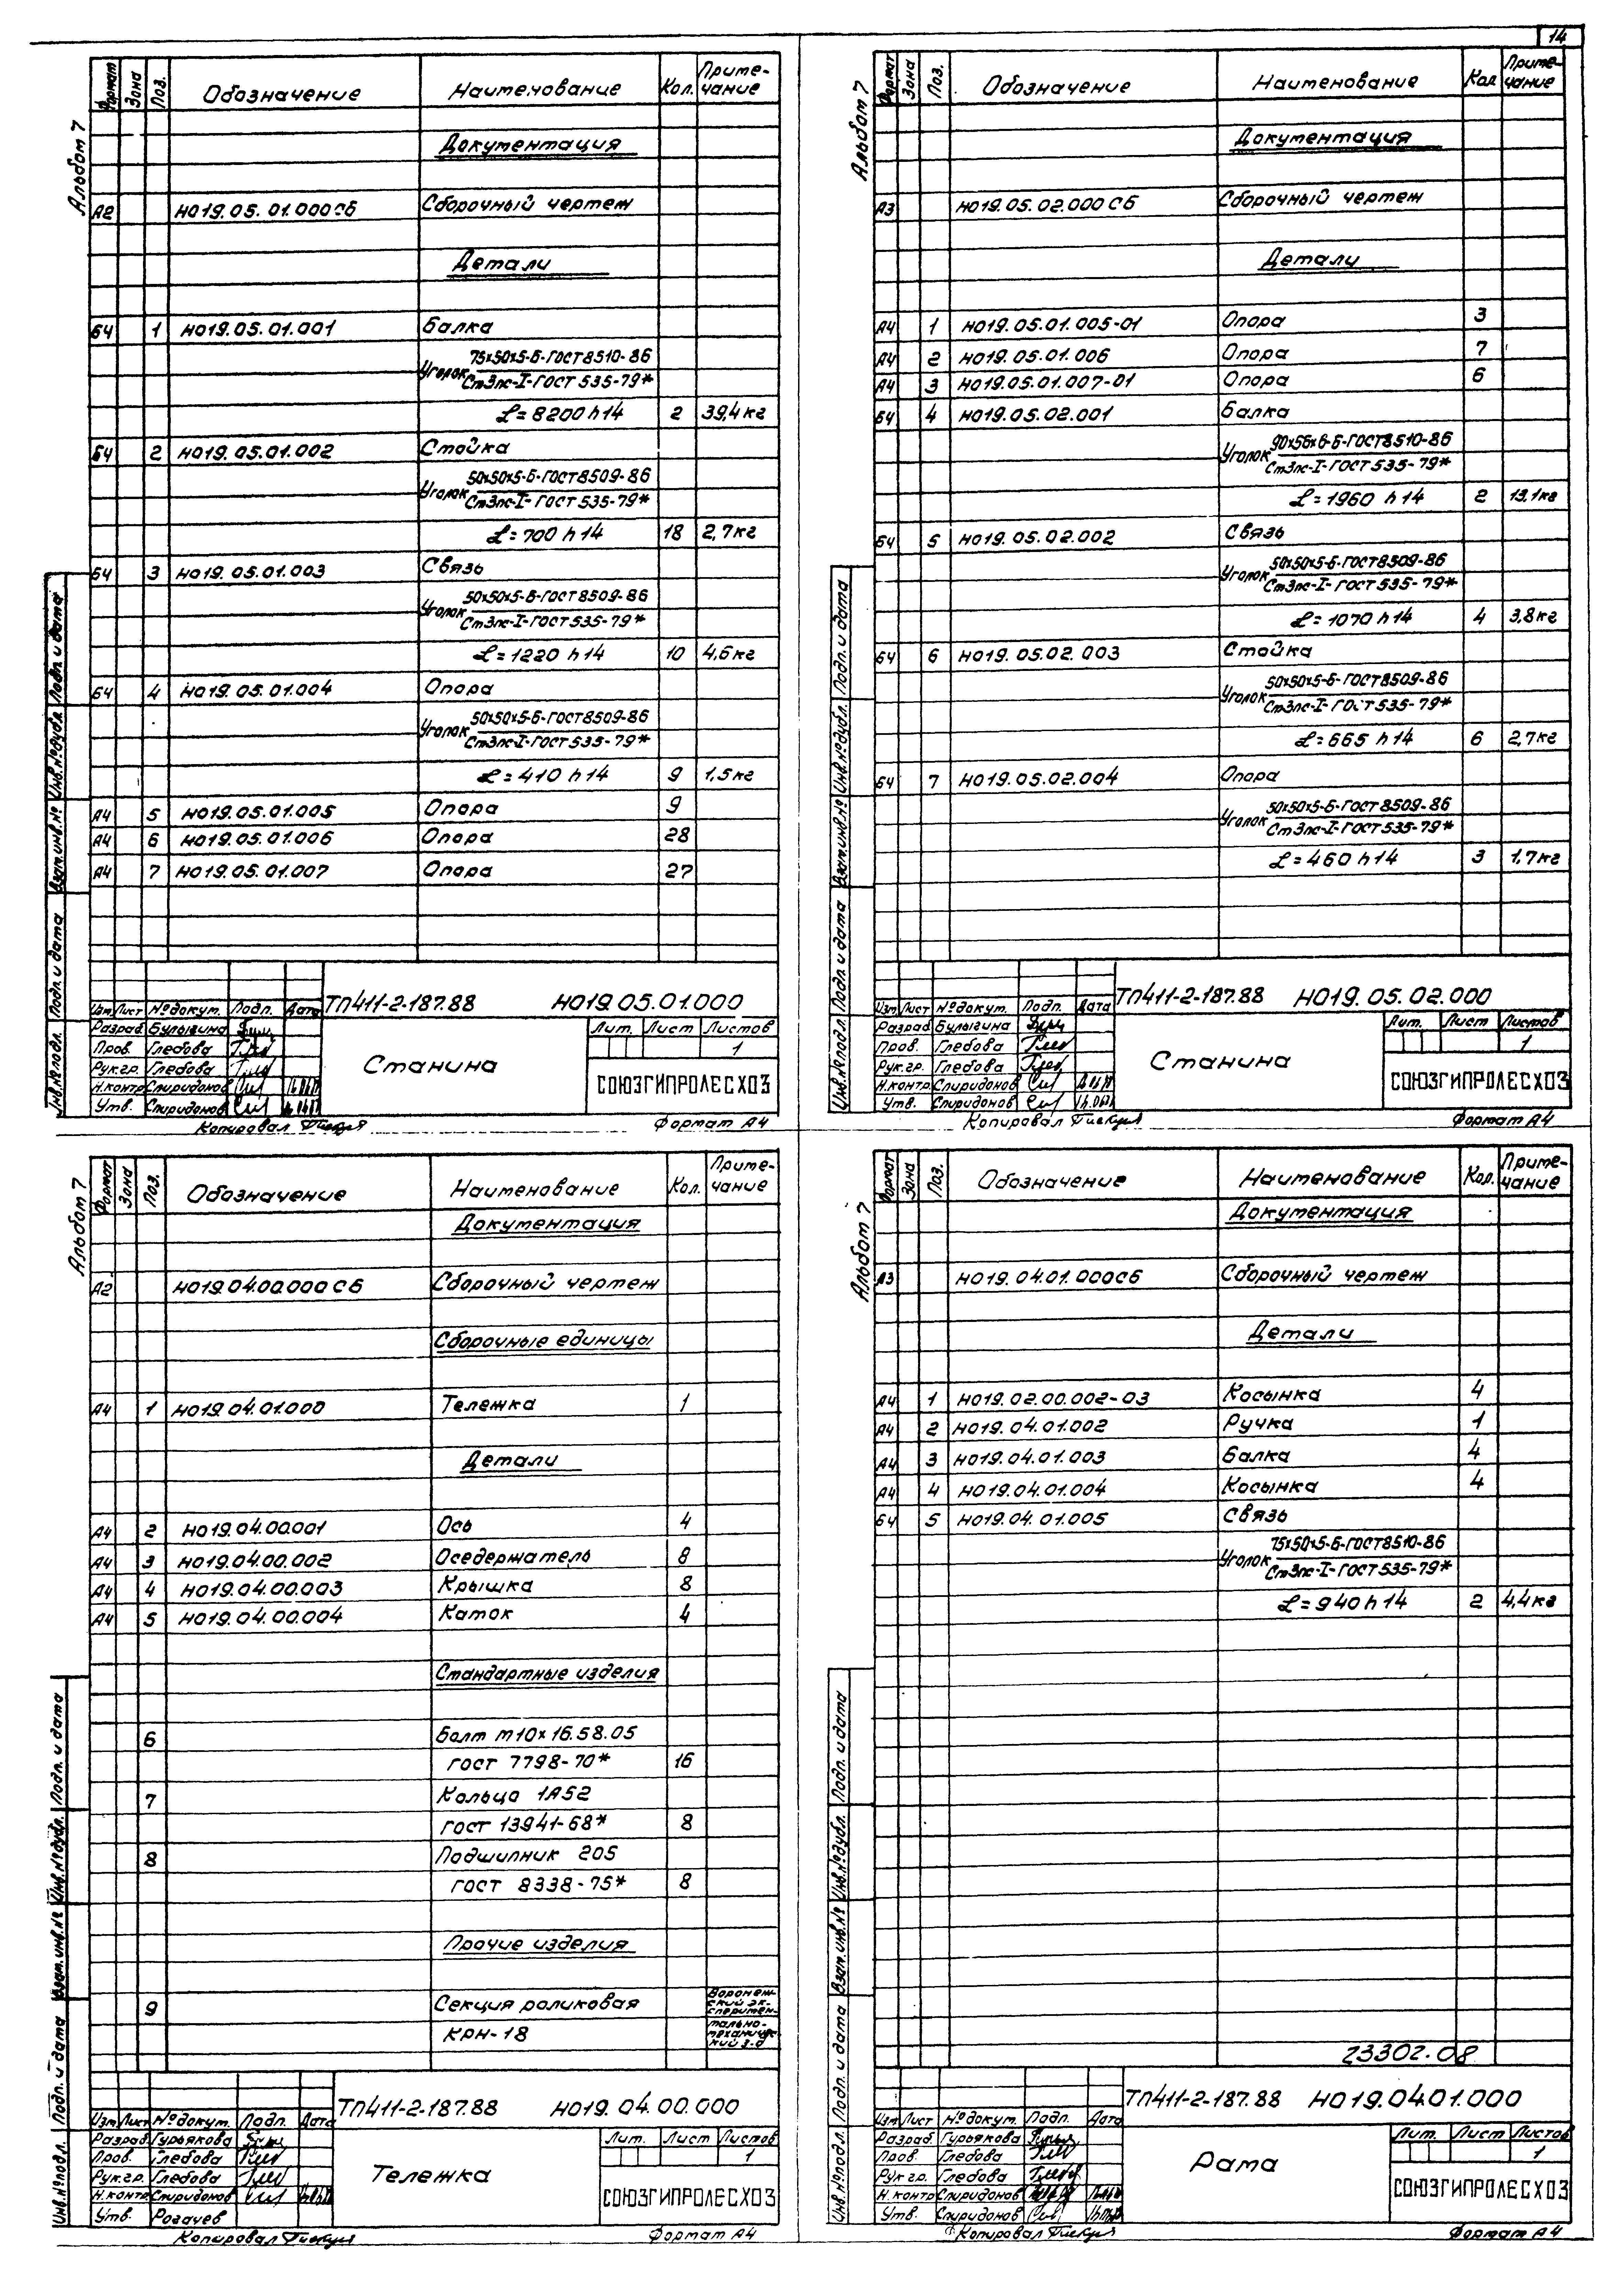 14
Альбом 7
Формат Зона Поз. Обозначение Наименование Кол. Приме-
чание
Документация
А2 НО19.05.01.000СБ Сборочный чертеж
Детали
БЧ 1 НО19.05.01.001 Балка
Уголок 75х50х5-Б-ГОСТ8510-86
Ст3пс-I-ГОСТ 535-79*
L=8200 h14 2 39,4кг
БЧ 2 НО19.05.01.002 Стойка
Уголок 50х50х5-Б-ГОСТ8509-86
Ст3пс-I-ГОСТ 535-79*
L=700 h14 18 2,7кг
БЧ 3 НО19.05.01.003 Связь
Уголок 50х50х5-Б-ГОСТ8509-86
Ст3пс-I-ГОСТ 535-79*
L=1220 h14 10 4,6кг
БЧ 4 НО19.05.01.004 Опора
Уголок 50х50х5-Б-ГОСТ8509-86
Ст3пс-I-ГОСТ 535-79*
L=410 h14 9 1,5кг
А4 5 НО19.05.01.005 Опора 9
А4 6 НО19.05.01.006 Опора 28
А4 7 НО19.05.01.007 Опора 27
Инв.№подл. Подп. и дата Взам.инв.№ Инв.№дубл. Подп. и дата
ТП411-2-187.88 НО19.05.01.000
Изм. Лист №докум. Подп. Дата
Разраб. Булыгина
Пров. Глебова
Рук.гр. Глебова
Н.контр Спиридонов
Утв. Спиридонов
Станина
Лит. Лист Листов
1
СОЮЗГИПРОЛЕСХОЗ
Копировал Формат А4
Альбом 7
Формат Зона Поз. Обозначение Наименование Кол Приме-
чание
Документация
А3 НО19.05.02.000СБ Сборочный чертеж
Детали
А4 1 НО19.05.01.005-01 Опора 3
А4 2 НО19.05.01.006 Опора 7
А4 3 НО19.05.01.007-01 Опора 6
БЧ 4 НО19.05.02.001 Балка
Уголок 90х56х6-Б-ГОСТ8510-86
Ст3пс-I-ГОСТ 535-79*
L=1960 h14 2 13.1кг
БЧ 5 НО19.05.02.002 Связь
Уголок 50х50х5-Б-ГОСТ8509-86
Ст3пс-I-ГОСТ 535-79*
L=1070 h14 4 3,8кг
БЧ 6 НО19.05.02.003 Стойка
Уголок 50х50х5-Б-ГОСТ8509-86
Ст3пс-I-ГОСТ 535-79*
L=665 h14 6 2,7кг
БЧ 7 НО19.05.02.004 Опора
Уголок 50х50х5-Б-ГОСТ8509-86
Ст3пс-I-ГОСТ 535-79*
L=460 h14 3 1,7кг
Инв.№подл. Подп. и дата Взам.инв.№ Инв.№дубл. Подп. и дата
ТП411-2-187.88 НО19.05.02.000
Изм. Лист №докум. Подп. Дата
Разраб Булыгина
Пров. Глебова
Рук.гр. Глебова
Н.контр Спиридонов
Утв. Спиридонов
Станина
Лит. Лист Листов
1
СОЮЗГИПРОЛЕСХОЗ
Копировал Формат А4
Альбом 7
Формат Зона Поз. Обозначение Наименование Кол. Приме-
чание
Документация
А2 НО19.04.00.000СБ Сборочный чертеж
Сборочные единицы
А4 1 НО19.04.01.000 Тележка 1
Детали
А4 2 НО19.04.00.001 Ось 4
А4 3 НО19.04.00.002 Оседержатель 8
А4 4 НО19.04.00.003 Крышка 8
А4 5 НО19.04.00.004 Каток 4
Стандартные изделия
6 Болт М10х16.58.05
ГОСТ 7798-70* 16
7 Кольцо 1А52
ГОСТ 13941-68* 8
8 Подшипник 205
ГОСТ 8338-75* 8
Прочие изделия
9 Секция роликовая Воронеж-
ский эк-
сперимен-
КРН-18 тально-
механичес-
кий з-д
Инв.№подл. Подп. и дата Взам.инв.№ Инв.№дубл. Подп. и дата
ТП411-2-187.88 НО19.04.00.000
Изм Лист №докум. Подп. Дата
Разраб. Гурьякова
Пров. Глебова
Рук.гр. Глебова
Н.контр Спиридонов
Утв. Рогачев
Тележка
Лит. Лист Листов
1
СОЮЗГИПРОЛЕСХОЗ
Копировал Формат А4
Альбом 7
Формат Зона Поз. Обозначение Наименование Кол. Приме-
чание
Документация
А3 НО19.04.01.000СБ Сборочный чертеж
Детали
А4 1 НО19.02.00.002-03 Косынка 4
А4 2 НО19.04.01.002 Ручка 1
А4 3 НО19.04.01.003 Балка 4
А4 4 НО19.04.01.004 Косынка 4
БЧ 5 НО19.04.01.005 Связь
Уголок 75х50х5-Б-ГОСТ8510-86
Ст3пс-I-ГОСТ 535-79*
L=940 h14 2 4,4кг
23302.08
Инв.№подл. Подп. и дата Взам.инв.№ Инв.№дубл. Подп. и дата
ТП411-2-187.88 НО19.0401.000
Изм. Лист №докум. Подп. Дата
Разраб. Гурьякова
Пров. Глебова
Рук.гр. Глебова
Н.контр Спиридонов
Утв. Спиридонов
Рама
Лит. Лист Листов
1
СОЮЗГИПРОЛЕСХОЗ
Копировал Формат А4